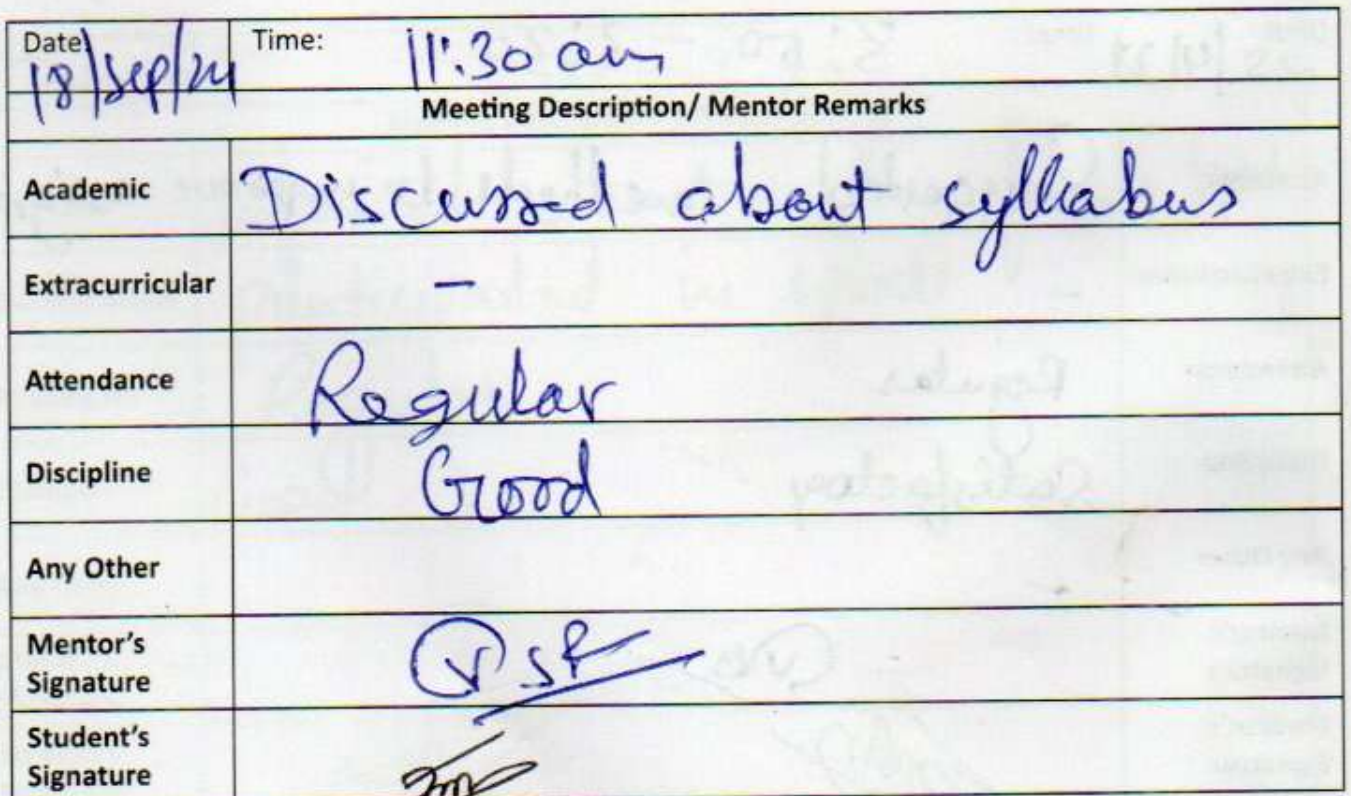 Date: Time: 11:30 am
18/Sep/24
Meeting Description/ Mentor Remarks
Academic Discussed about syllabus
Extracurricular -
Attendance Regular
Discipline Good
Any Other
Mentor's
Signature
Student's
Signature